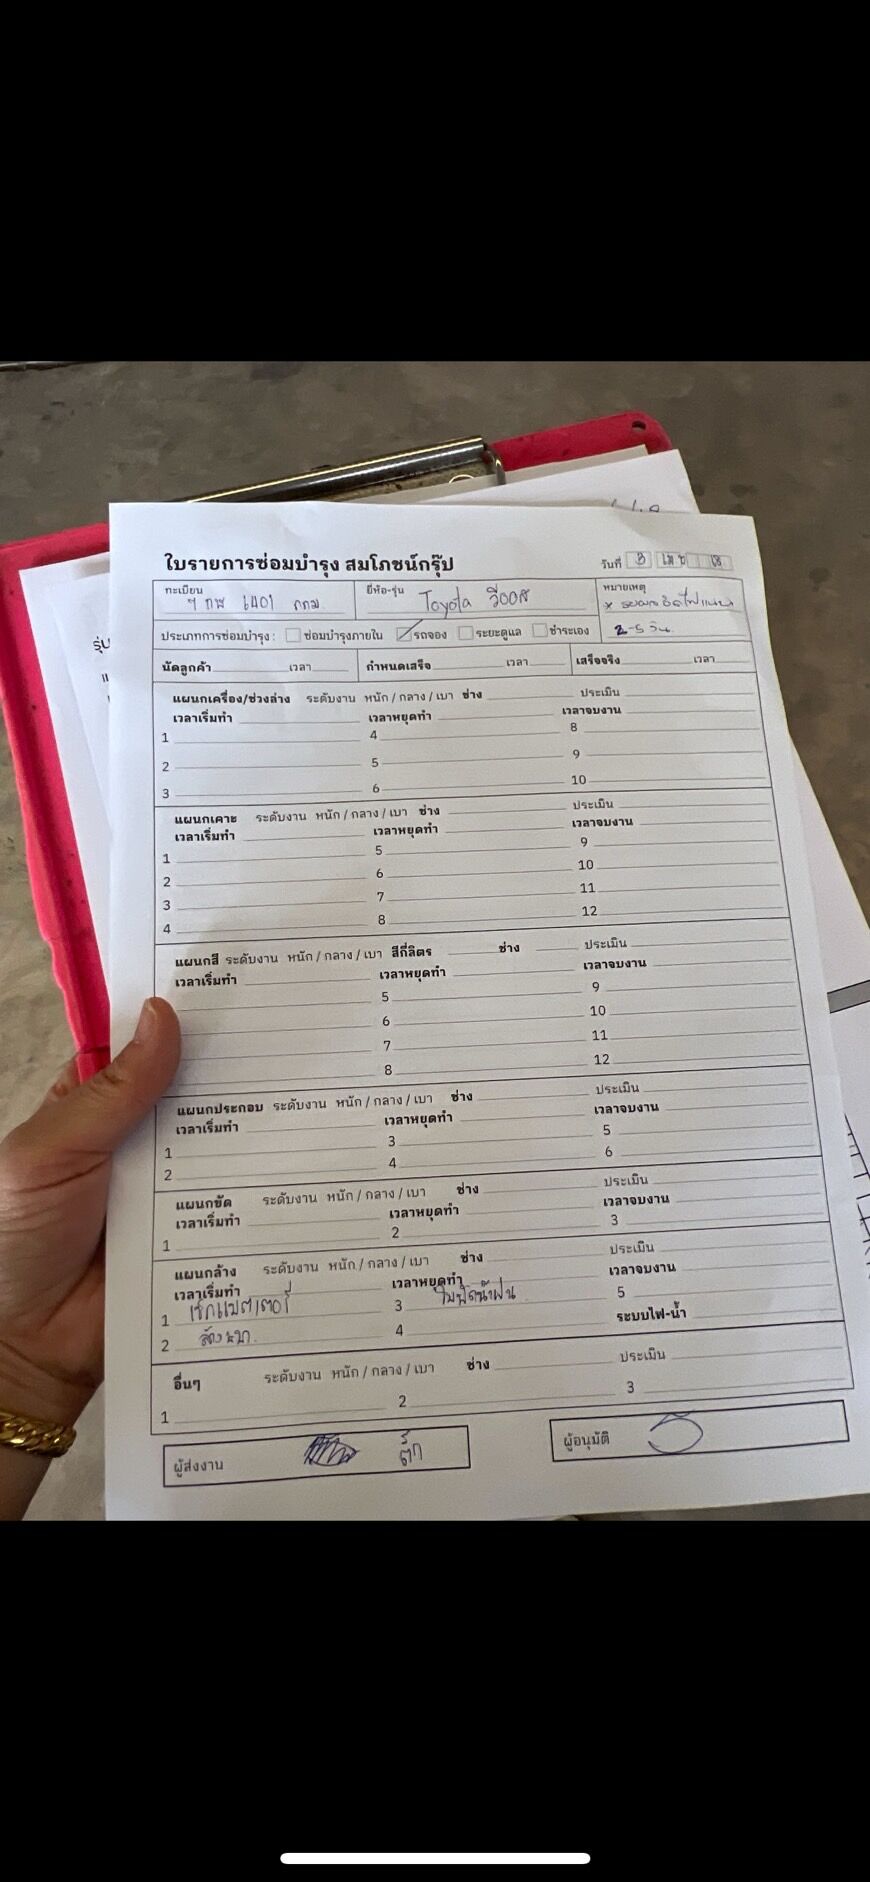 ใบรายการซ่อมบำรุง สมโภชน์กรุ๊ป
วันที่ 3
ทะเบียน 6401 กทม.
ยี่ห้อ-รุ่น Toyota วีออส
หมายเหตุ
2-5 วัน
ประเภทการซ่อมบำรุง : ซ่อมบำรุงภายใน รถจอง ระยะดูแล ชำระเอง
นัดลูกค้า เวลา กำหนดเสร็จ เวลา เสร็จจริง เวลา
แผนกเครื่อง/ช่วงล่าง ระดับงาน หนัก / กลาง / เบา ช่าง ประเมิน
เวลาเริ่มทำ เวลาหยุดทำ เวลาจบงาน
1 4 8
2 5 9
3 6 10
แผนกเคาะ ระดับงาน หนัก / กลาง / เบา ช่าง ประเมิน
เวลาเริ่มทำ เวลาหยุดทำ เวลาจบงาน
1 5 9
2 6 10
3 7 11
4 8 12
แผนกสี ระดับงาน หนัก / กลาง / เบา สีกี่ลิตร ช่าง ประเมิน
เวลาเริ่มทำ เวลาหยุดทำ เวลาจบงาน
5 9
6 10
7 11
8 12
แผนกประกอบ ระดับงาน หนัก / กลาง / เบา ช่าง ประเมิน
เวลาเริ่มทำ เวลาหยุดทำ เวลาจบงาน
1 3 5
2 4 6
แผนกขัด ระดับงาน หนัก / กลาง / เบา ช่าง ประเมิน
เวลาเริ่มทำ เวลาหยุดทำ เวลาจบงาน
1 2 3
แผนกล้าง ระดับงาน หนัก / กลาง / เบา ช่าง ประเมิน
เวลาเริ่มทำ เวลาหยุดทำ เวลาจบงาน
1 เช็กแบตเตอรี่ 3 ใบปัดน้ำฝน 5
2 4 ระบบไฟ-น้ำ
อื่นๆ ระดับงาน หนัก / กลาง / เบา ช่าง ประเมิน
1 2 3
ผู้ส่งงาน
ผู้อนุมัติ